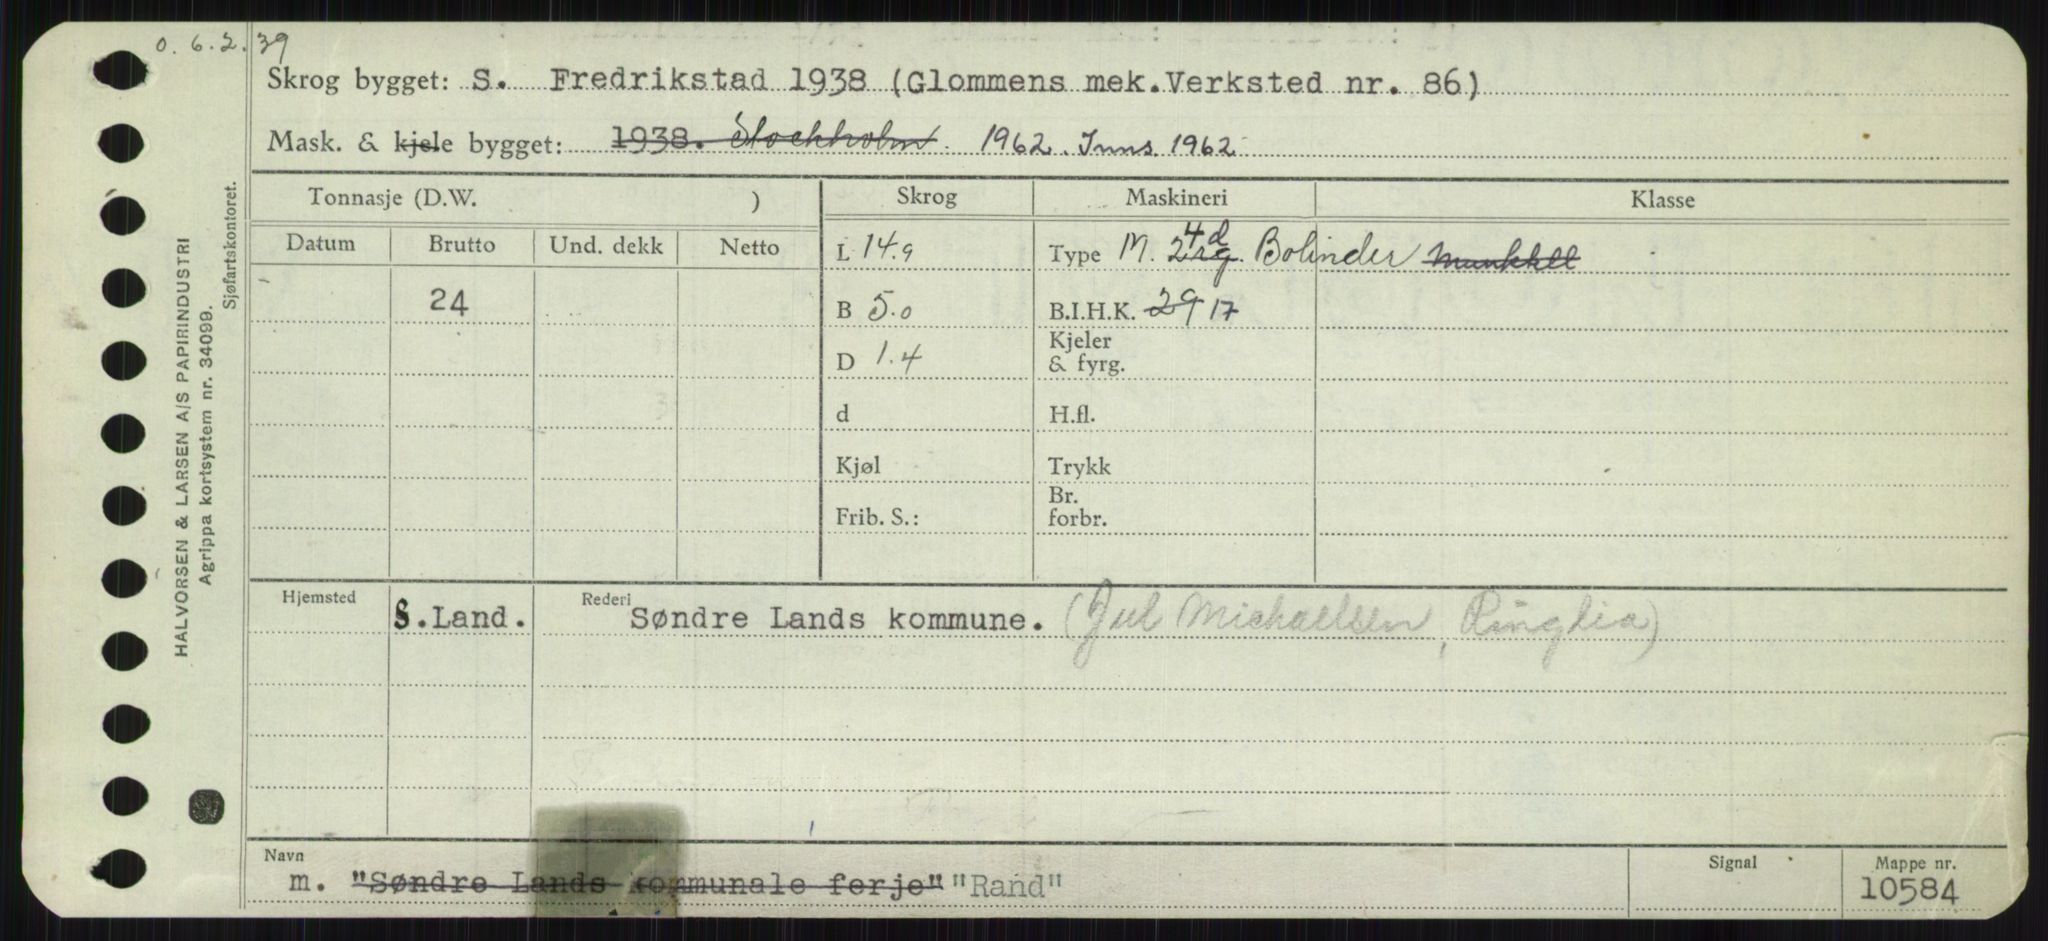 o. 6.2.39
Skrog bygget: S. Fredrikstad 1938 (Glommens mek.Verksted nr. 86)
Mask. & kjele bygget: 1938. Stockholm 1962. Inns. 1962
Tonnasje (D.W. )
Skrog
Maskineri
Klasse
Datum Brutto Und. dekk Netto
L 14.9
Type M. 2 4 d rg. Bolinder Munktell
24
B 5.0
B.I.H.K. 29 17
D 1.4
Kjeler
& fyrg.
d
H.fl.
Kjøl
Trykk
Frib. S.:
Br.
forbr.
Hjemsted
S.Land.
Rederi
Søndre Lands kommune. (Jul Michaelsen, Ringlia)
Navn
m. "Søndre Lands kommunale ferje" "Rand"
Signal
Mappe nr.
10584
HALVORSEN & LARSEN A/S PAPIRINDUSTRI
Agrippa kortsystem nr. 34099.
Sjøfartskontoret.